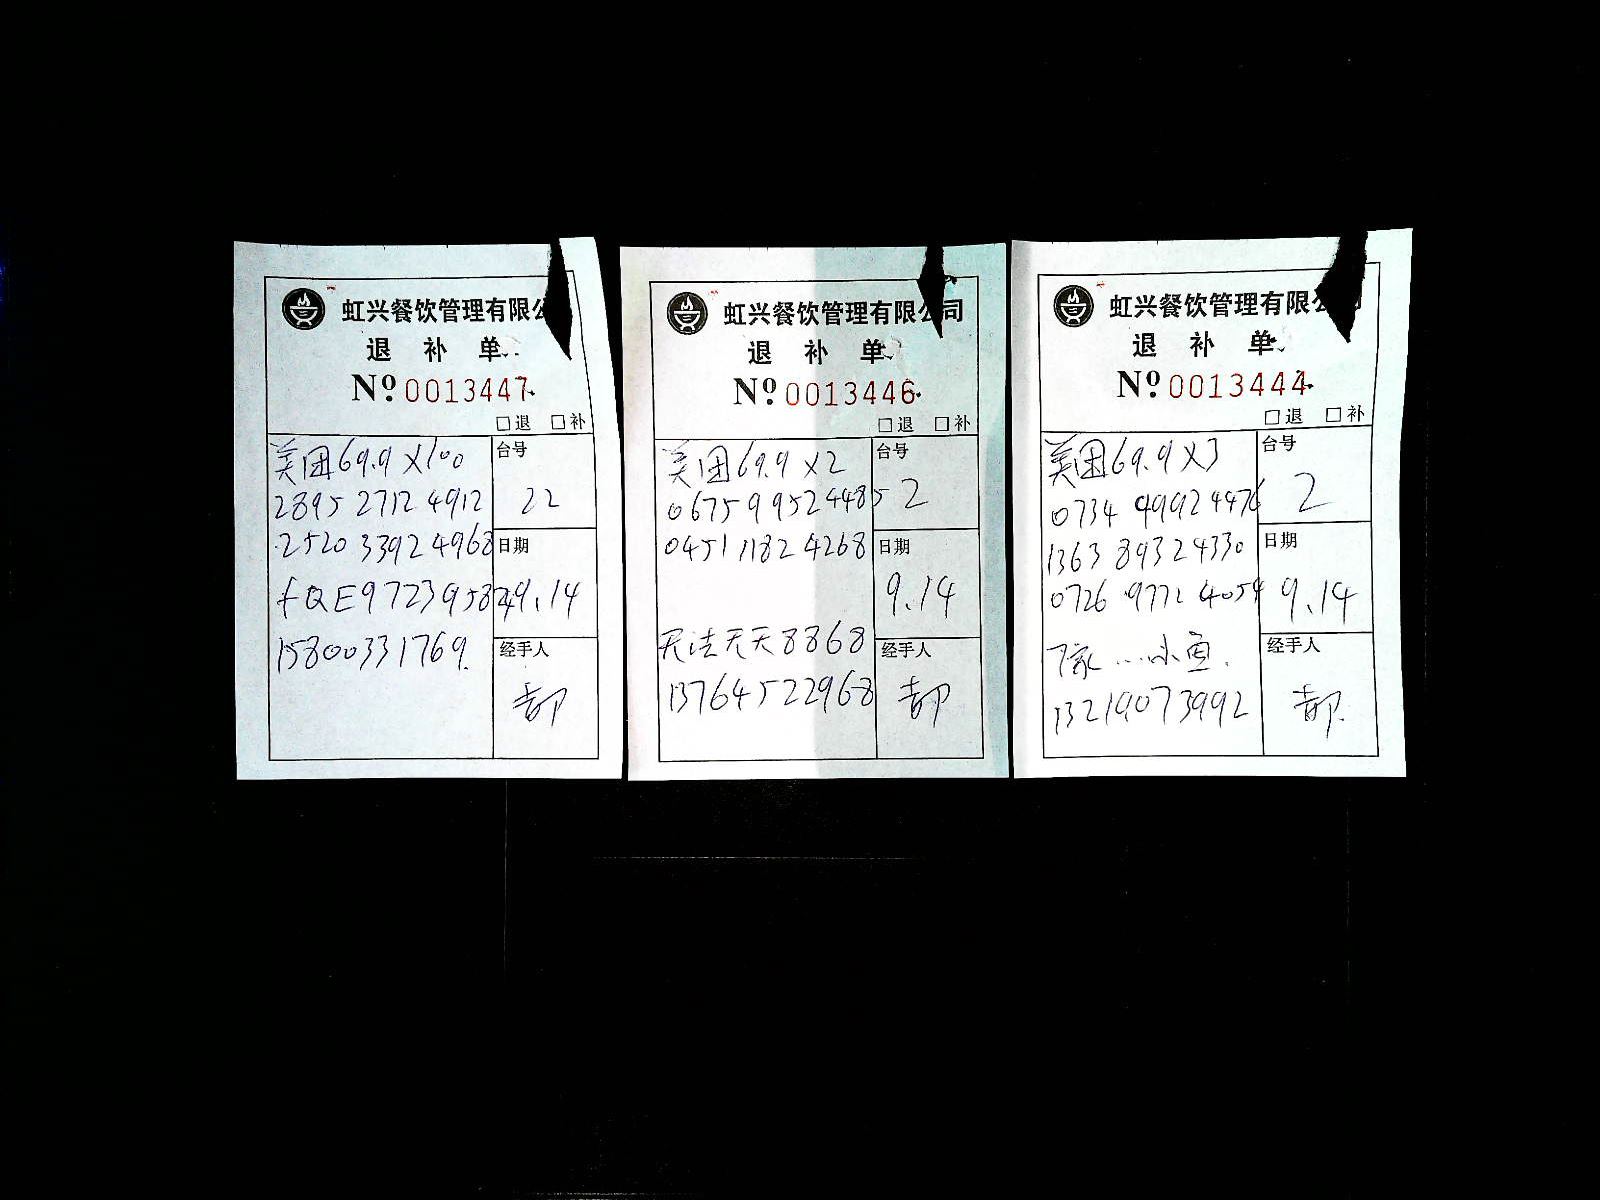 虹兴餐饮管理有限公
退 补 单
Nº 0013447
□退 □补
美团69.9×100
2895 2712 4912
2520 3392 4968
fQE972395824
15800331769
台号
22
日期
9.14
经手人
郝
虹兴餐饮管理有限公司
退 补 单
Nº 0013446
□退 □补
美团69.9×2
0675 9952 4485
0451 1182 4268
无法无天8868
13764522968
台号
2
日期
9.14
经手人
郝
虹兴餐饮管理有限公司
退 补 单
Nº 0013444
□退 □补
美团69.9×3
0734 4992 4476
1363 8932 4330
0726 9772 4054
小鱼
13219073992
台号
2
日期
9.14
经手人
郝